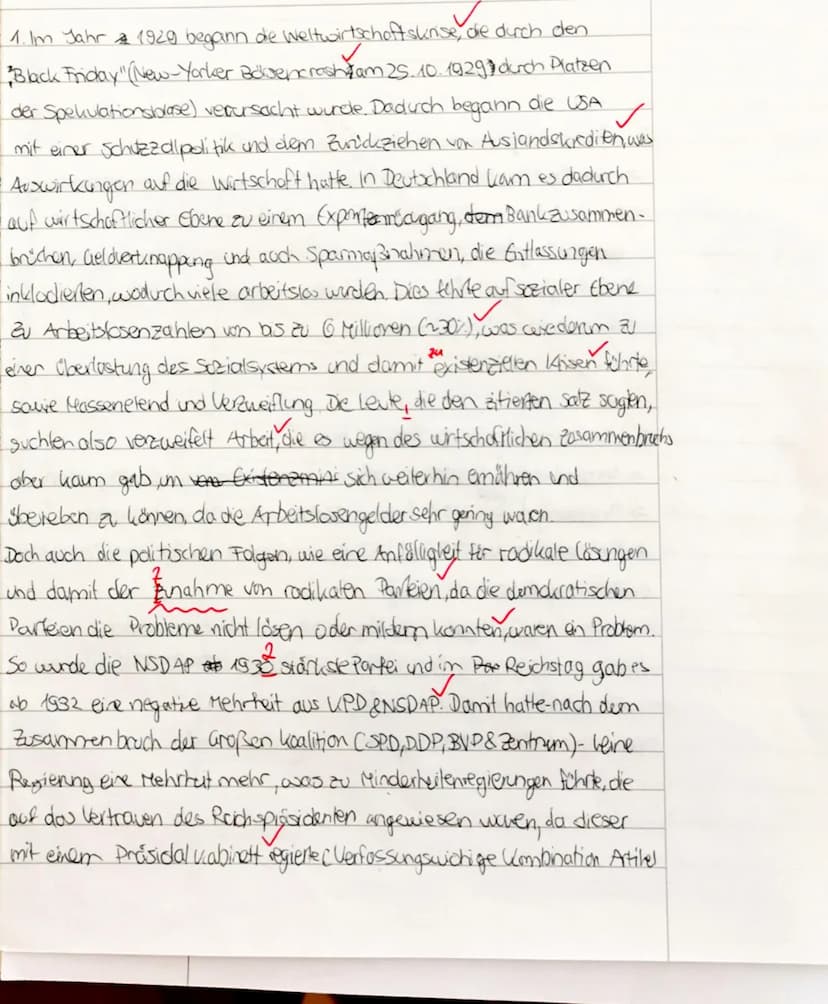 1. Im Jahr 1929 begann die Weltwirtschaftskrise, die durch den
"Black Friday" (New-Yorker Börsencrash am 25.10.1929) durch Platzen
der Spekulationsblase) verursacht wurde. Dadurch begann die USA
mit einer Schutzzollpolitik und dem Zurückziehen von Auslandskrediten, was
Auswirkungen auf die Wirtschaft hatte. In Deutschland kam es dadurch
auf wirtschaftlicher Ebene zu einem Exportrückgang, dem Bankzusammen-
brüchen, Geldverknappung und auch Sparmaßnahmen, die Entlassungen
inkludierten, wodurch viele arbeitslos wurden. Dies führte auf sozialer Ebene
zu Arbeitslosenzahlen von bis zu 6 Millionen (~30%), was wiederum zu
einer Überlastung des Sozialsystems und damit zu existenziellen Krisen führte,
sowie Massenelend und Verzweiflung. Die Leute, die den zitierten Satz sagten,
suchten also verzweifelt Arbeit, die es wegen des wirtschaftlichen Zusammenbruchs
aber kaum gab, um sich weiterhin ernähren und
überleben zu können, da die Arbeitslosengelder sehr gering waren.
Doch auch die politischen Folgen, wie eine Anfälligkeit für radikale Lösungen
und damit der Znahme von radikalen Parteien, da die demokratischen
Parteien die Probleme nicht lösen oder mildern konnten, waren ein Problem.
So wurde die NSDAP 1932 stärkste Partei und im Reichstag gab es
ab 1932 eine negative Mehrheit aus KPD & NSDAP. Damit hatte - nach dem
Zusammenbruch der Großen Koalition (SPD, DDP, BVP & Zentrum) - keine
Regierung eine Mehrheit mehr, was zu Minderheitenregierungen führte, die
auf das Vertrauen des Reichspräsidenten angewiesen waren, da dieser
mit einem Präsidialkabinett regierte (Verfassungswidrige Kombination Artikel